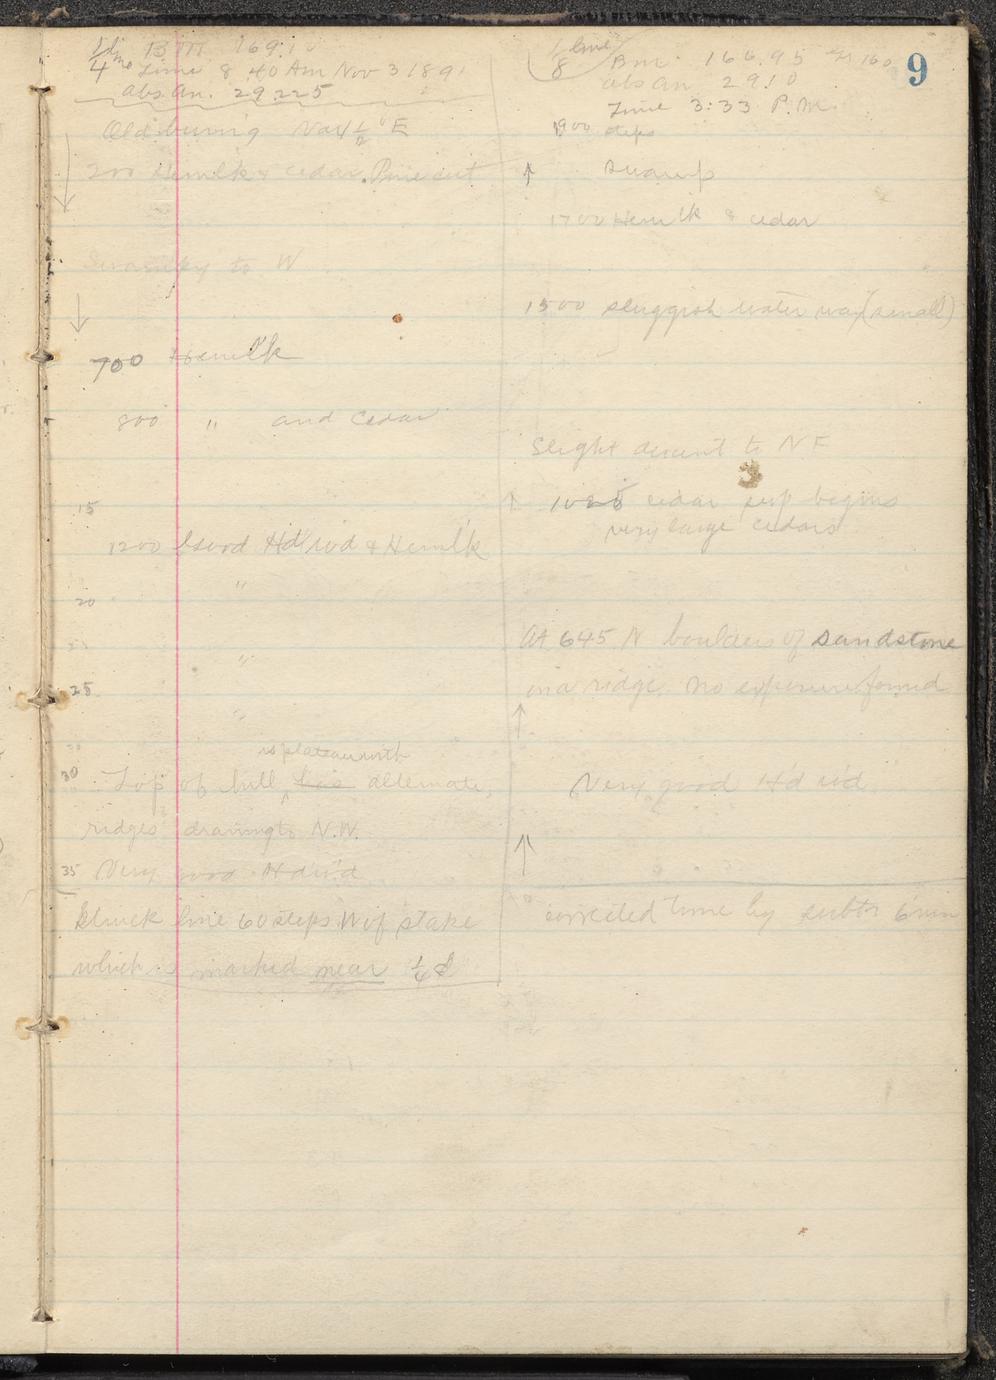 9
1/4 line BM 169.10
Time 8 40 Am Nov 3 1891
abs An. 29.225
Old burning Var 4 1/2° E
200 Hemlk & cedar. Pine cut
to W
700 Hemlk
800 " and Cedar
15
1200 Good Hd wd & Hemlk
"
20
"
25
"
is plateau with
30 Top of hill has alternate,
ridges draining to N.W.
35 Very good Hd w'd
Struck line 60 steps W of stake
which is marked near 1/4 d
1/8 line
Bm. 166.95
abs An 29.10
Time 3:33 P.M.
1900 steps
Swamp
1700 Hemlk & cedar
1500 sluggish water way (small)
Slight descent to N E
1025 cedar swp begins
very large cedars
At 645 N boulders of sandstone
in a ridge. No exposure found
Very good H'd w'd
corrected time by subtr 6 min